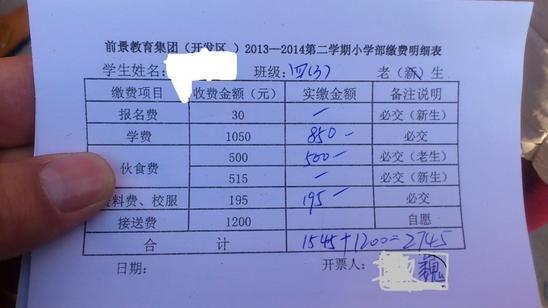 前景教育集团（开发区 ）2013—2014第二学期小学部缴费明细表
学生姓名: 班级: 四(3) 老（新）生
缴费项目 收费金额（元） 实缴金额 备注说明
报名费 30 — 必交（新生）
学费 1050 850— 必交
伙食费 500 500— 必交（老生）
515 — 必交（新生）
料费、校服 195 195— 必交
接送费 1200 自愿
合 计 1545+1200=2745
日期: 开票人: 魏